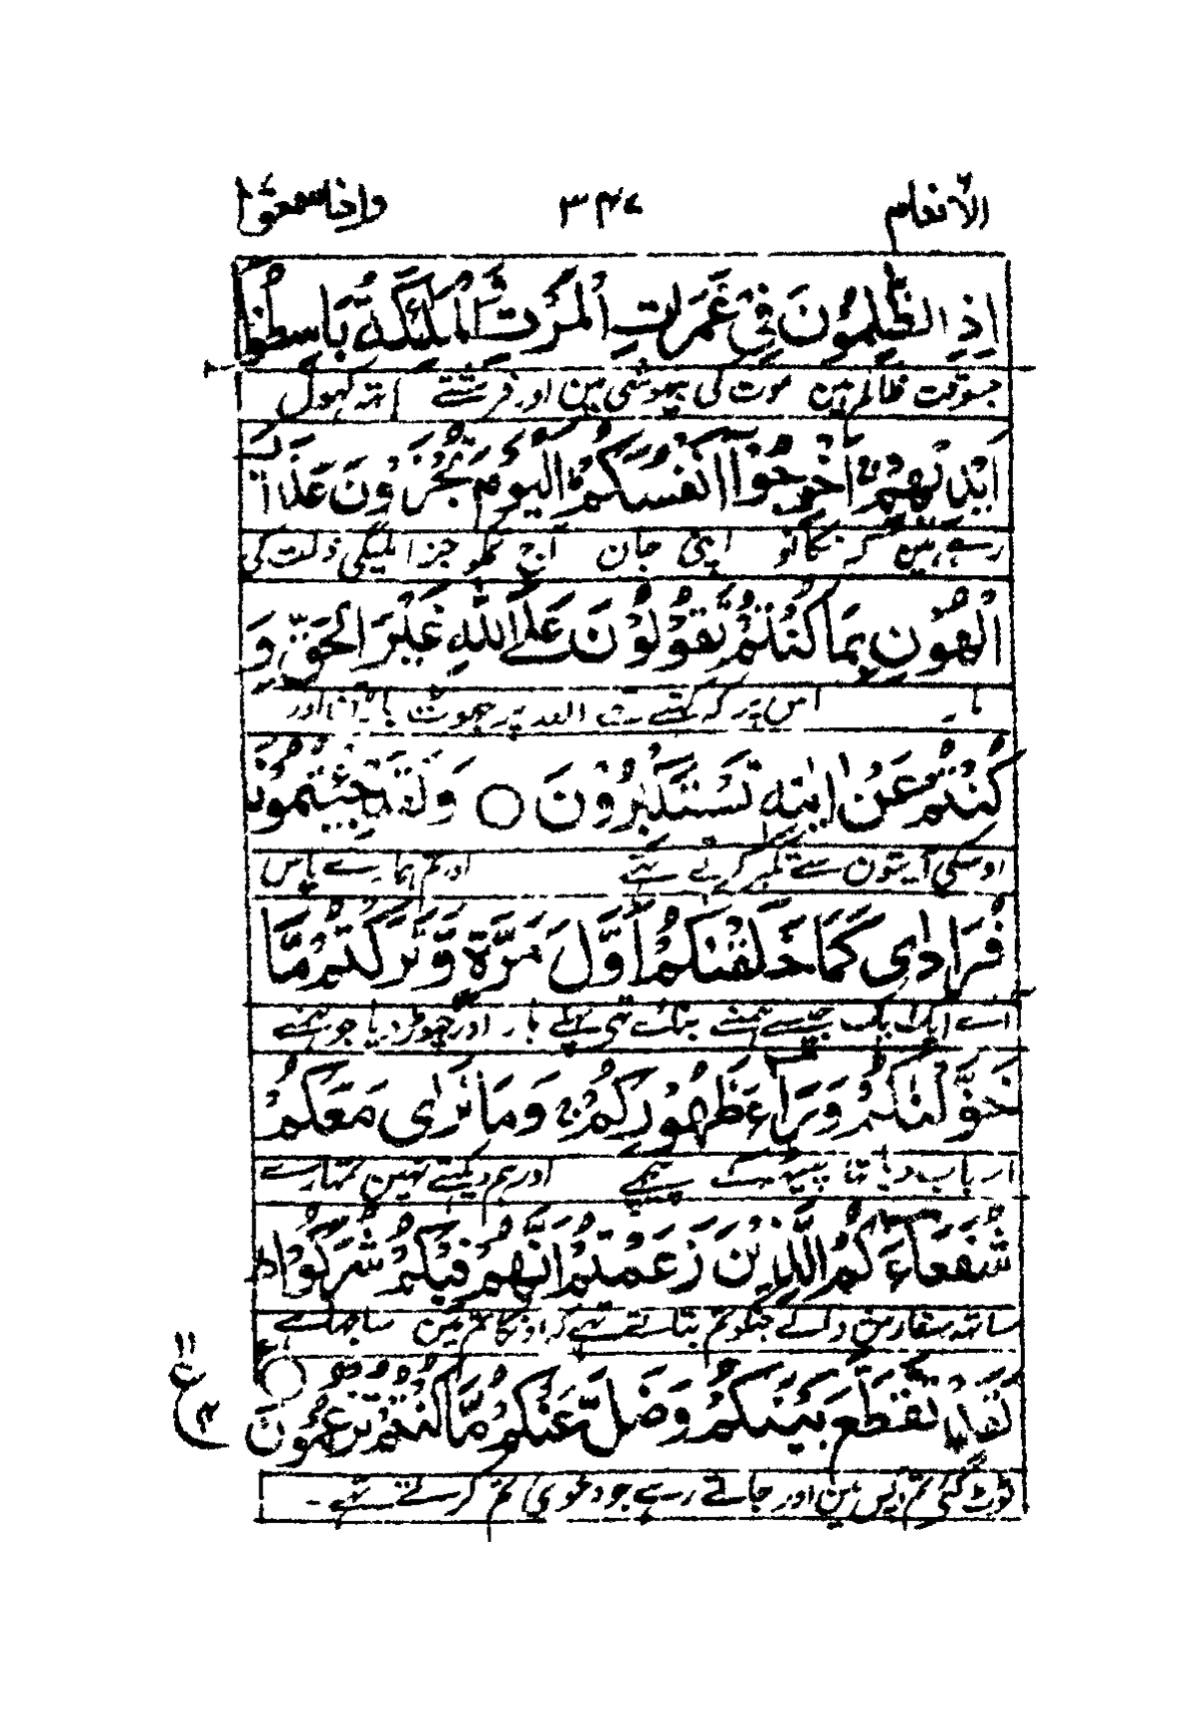 الانعام ٦ ٣٤٧ واذا سمعوا ٧
اِذِ الظّٰلِمُوْنَ فِیْ غَمَرٰتِ الْمَوْتِ وَالْمَلٰٓئِكَةُ بَاسِطُوْٓا
جسوقت ظالم ہین موت کی بیہوشی مین اور فرشتے ہاتھہ کھول
اَیْدِیْهِمْ ۚ اَخْرِجُوْٓا اَنْفُسَكُمْ ؕ اَلْیَوْمَ تُجْزَوْنَ عَذَابَ
رہے ہین کہ نکالو اپنی جان آج تمکو جزا ملیگی ذلت کی
الْهُوْنِ بِمَا كُنْتُمْ تَقُوْلُوْنَ عَلَی اللّٰهِ غَیْرَ الْحَقِّ وَ
مار اس پر کہ کہتے تھے اللہ پر جھوٹ باتین اور
كُنْتُمْ عَنْ اٰیٰتِهٖ تَسْتَكْبِرُوْنَ ○ وَلَقَدْ جِئْتُمُوْنَا
اوسکی آیتون سے تکبر کرتے تھے اور تم ہمارے پاس
فُرَادٰی كَمَا خَلَقْنٰكُمْ اَوَّلَ مَرَّةٍ وَّتَرَكْتُمْ مَّا
آے ایک ایک جیسے ہمنے بنائے تھے پہلے بار اور چھوڑ دیا جو ہمنے
خَوَّلْنٰكُمْ وَرَآءَ ظُهُوْرِكُمْ ۚ وَمَا نَرٰی مَعَكُمْ
اسباب دیا تھا پیٹھہ کے پیچھے اور ہم دیکھتے نہین تمہارے
شُفَعَآءَكُمُ الَّذِیْنَ زَعَمْتُمْ اَنَّهُمْ فِیْكُمْ شُرَكٰٓؤُا ؕ
ساتھہ سفارش والے جنکو تم بتاتے تھے کہ اونکا تم مین ساجھا ہے
لَقَدْ تَّقَطَّعَ بَیْنَكُمْ وَضَلَّ عَنْكُمْ مَّا كُنْتُمْ تَزْعُمُوْنَ ○
ٹوٹ گئے تم آپس مین اور جاتے رہے جو دعوی تم کرتے تھے۔
١١ ع ٤